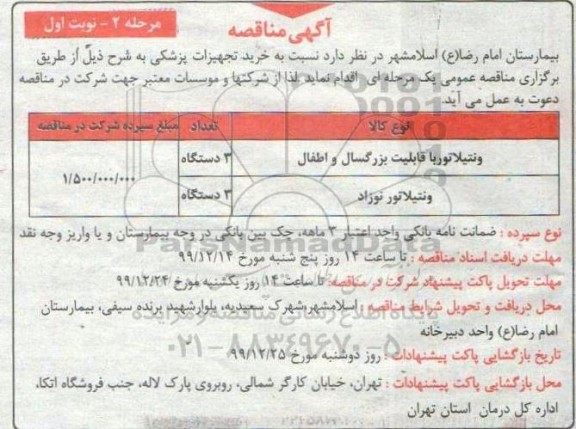 مرحله ۲ - نوبت اول
آگهی مناقصه
بیمارستان امام رضا(ع) اسلامشهر در نظر دارد نسبت به خرید تجهیزات پزشکی به شرح ذیل از طریق
برگزاری مناقصه عمومی یک مرحله ای اقدام نماید. لذا از شرکتها و موسسات معتبر جهت شرکت در مناقصه
دعوت به عمل می آید.
نوع کالا تعداد مبلغ سپرده شرکت در مناقصه
ونتیلاتوربا قابلیت بزرگسال و اطفال ۳ دستگاه
۱/۵۰۰/۰۰۰/۰۰۰
ونتیلاتور نوزاد ۳ دستگاه
نوع سپرده : ضمانت نامه بانکی واجد اعتبار ۳ ماهه، چک بین بانکی در وجه بیمارستان و یا واریز وجه نقد
مهلت دریافت اسناد مناقصه : تا ساعت ۱۴ روز پنج شنبه مورخ ۹۹/۱۲/۱۴
مهلت تحویل پاکت پیشنهاد شرکت در مناقصه: تا ساعت ۱۴ روز یکشنبه مورخ ۹۹/۱۲/۲۴
محل دریافت و تحویل شرایط مناقصه : اسلامشهر،شهرک سعیدیه، بلوارشهید برنده سیفی، بیمارستان
امام رضا(ع) واحد دبیرخانه
تاریخ بازگشایی پاکت پیشنهادات : روز دوشنبه مورخ ۹۹/۱۲/۲۵
محل بازگشایی پاکت پیشنهادات : تهران، خیابان کارگر شمالی، روبروی پارک لاله، جنب فروشگاه اتکا،
اداره کل درمان استان تهران
ParsNamadData
پایگاه اطلاع رسانی مناقصه و مزایده
۰۲۱-۸۸۳۴۹۶۷۰-۵